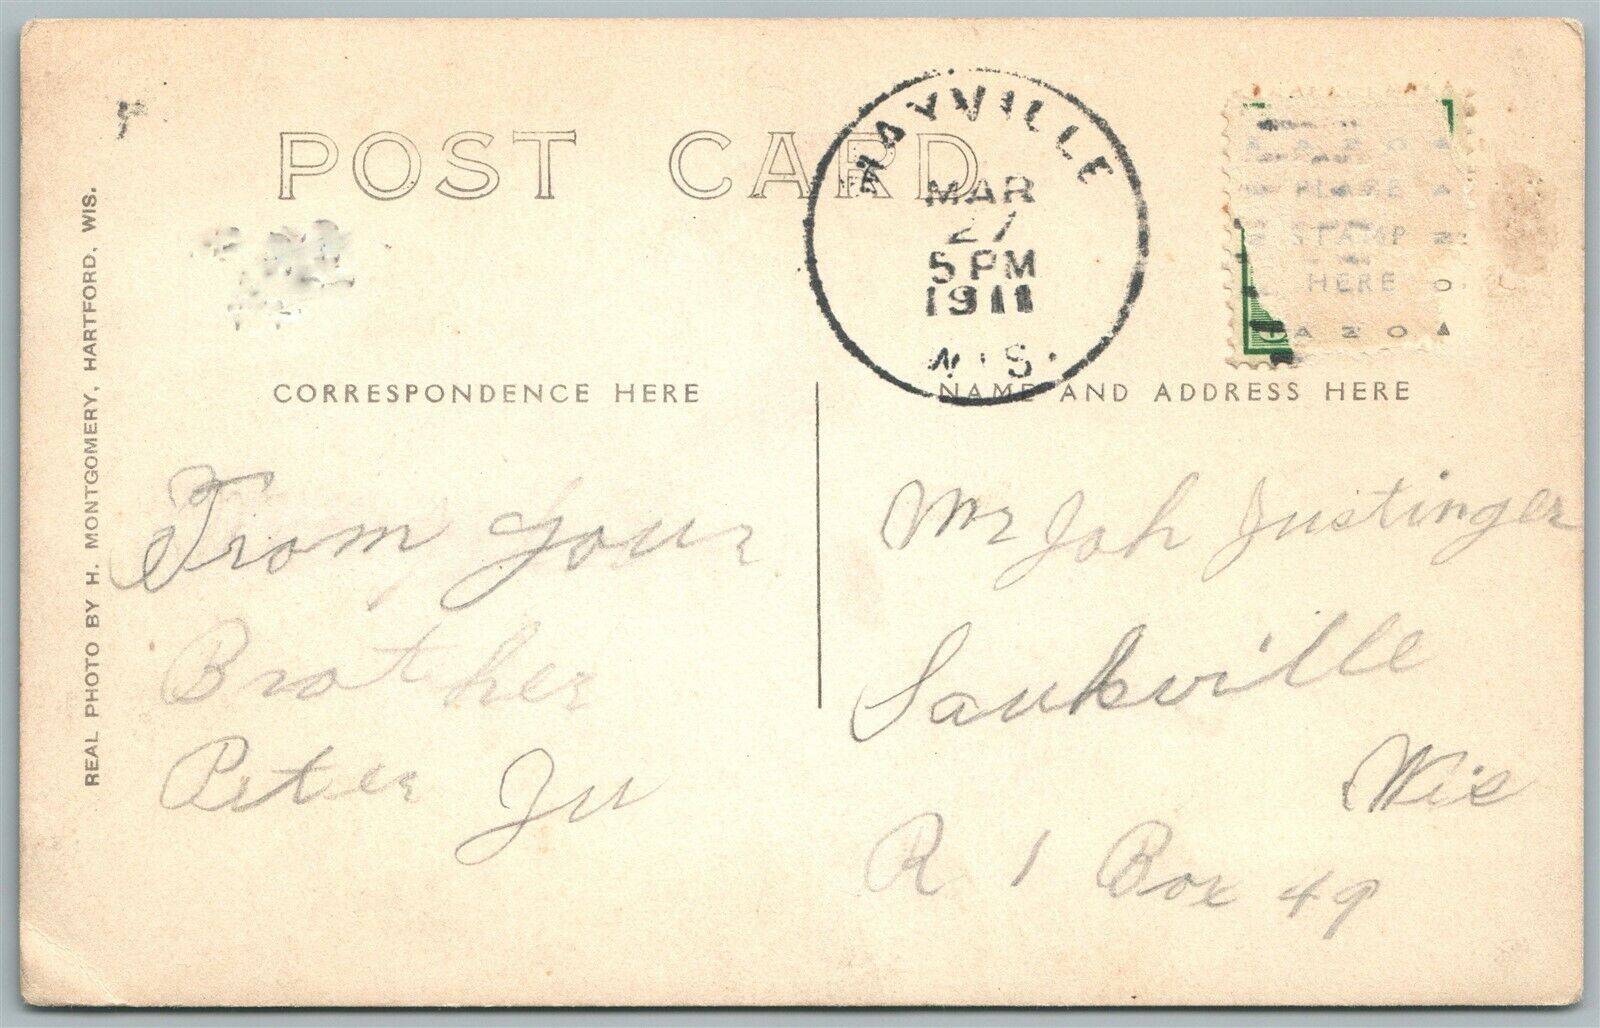 POST CARD
MAYVILLE
MAR
27
5 PM
1911
WIS.
AZO
PLACE
STAMP
HERE
AZO
REAL PHOTO BY H. MONTGOMERY, HARTFORD, WIS.
CORRESPONDENCE HERE
NAME AND ADDRESS HERE
From your
Brother
Peter Ju
Mr Joh Justinger
Saukville
Wis
R 1 Box 49